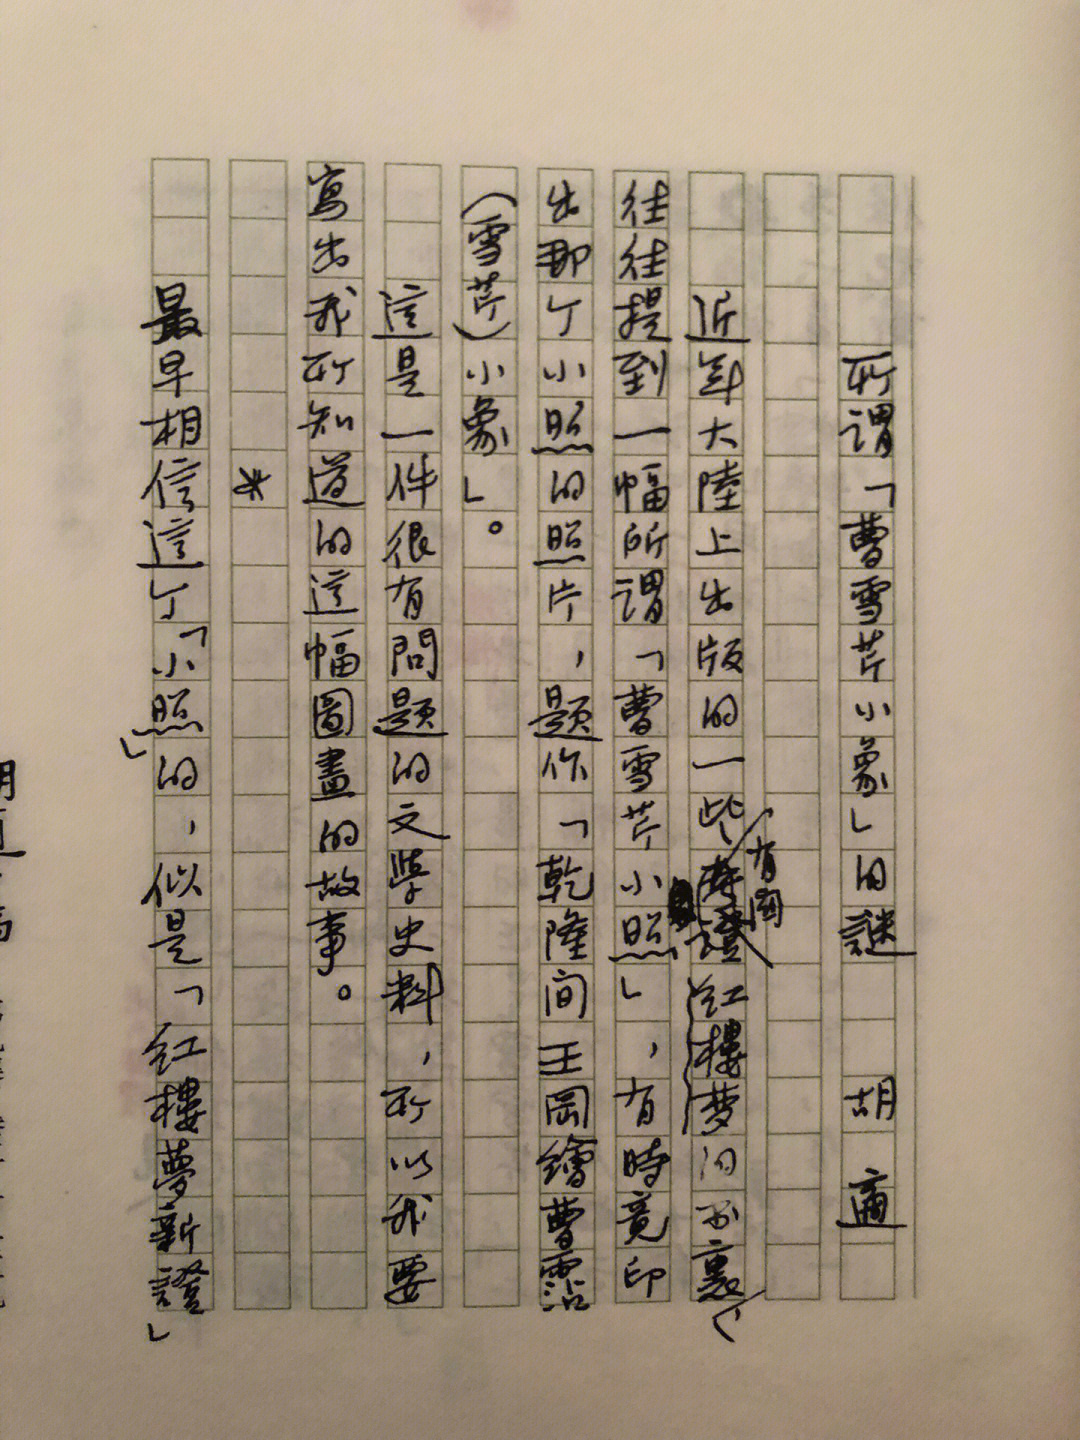 所謂「曹雪芹小象」的謎　胡適
近年大陸上出版的一些有関紅樓夢的書裏,
往往提到一幅所謂「曹雪芹小照」,有時竟印
出那个小照的照片,題作「乾隆间王岡繪曹霑
(雪芹)小象」。
這是一件很有問題的文學史料,所以我要
寫出我所知道的這幅圖畫的故事。
*
最早相信這个「小照」的,似是「紅樓夢新證」